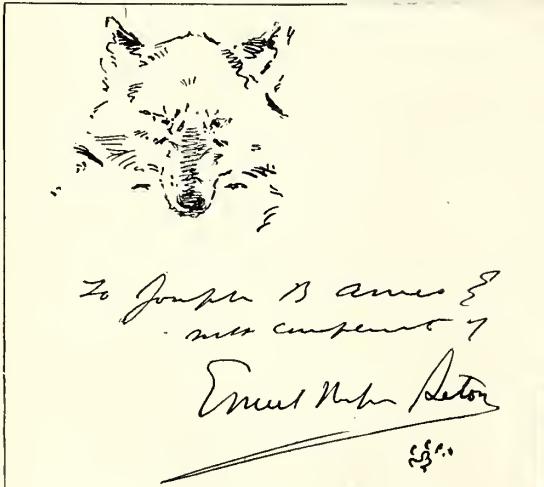 To Joseph B Ames
with compliments of
Ernest Thompson Seton